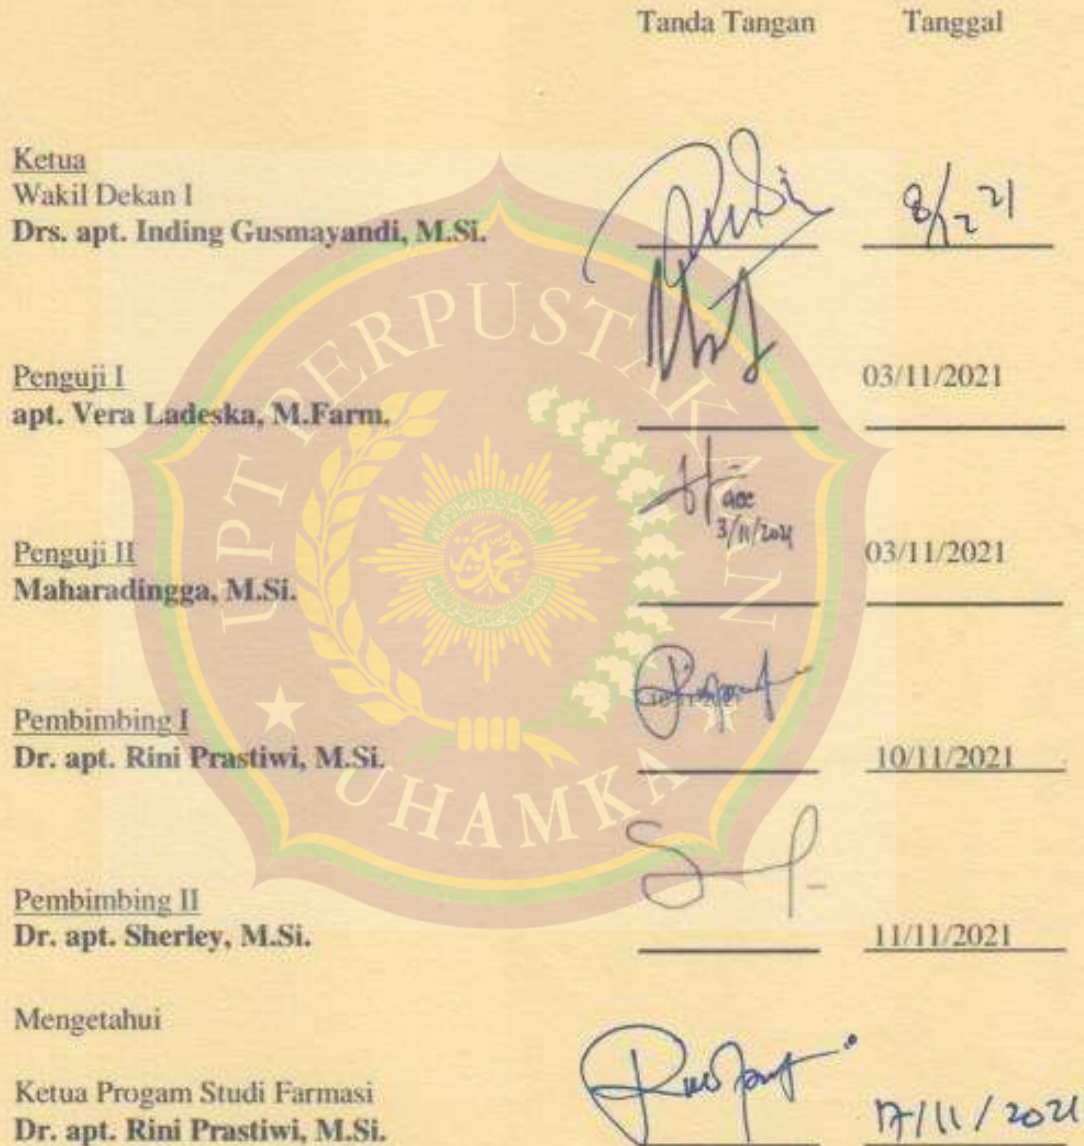 Tanda Tangan Tanggal
Ketua
Wakil Dekan I
Drs. apt. Inding Gusmayandi, M.Si.
8/12 21
Penguji I
apt. Vera Ladeska, M.Farm.
03/11/2021
acc
3/11/2021
Penguji II
Maharadingga, M.Si.
03/11/2021
Pembimbing I
Dr. apt. Rini Prastiwi, M.Si.
10/11/2021
Pembimbing II
Dr. apt. Sherley, M.Si.
11/11/2021
Mengetahui
Ketua Progam Studi Farmasi
Dr. apt. Rini Prastiwi, M.Si.
17/11/2021
UPT PERPUSTAKAAN
UHAMKA